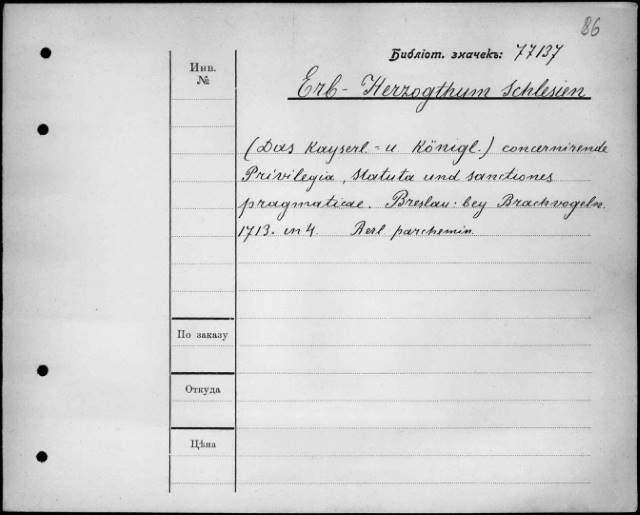 86
Библіот. значекъ: 77137
Инв.
№
Erb- Herzogthum Schlesien
(Das Kayserl.= u. Königl.) concernirende
Privilegia, Statuta und sanctiones
pragmaticae. Breslau: bey Brachvogeln.
1713. in 4. Rerl. parchemin.
По заказу
Откуда
Цѣна